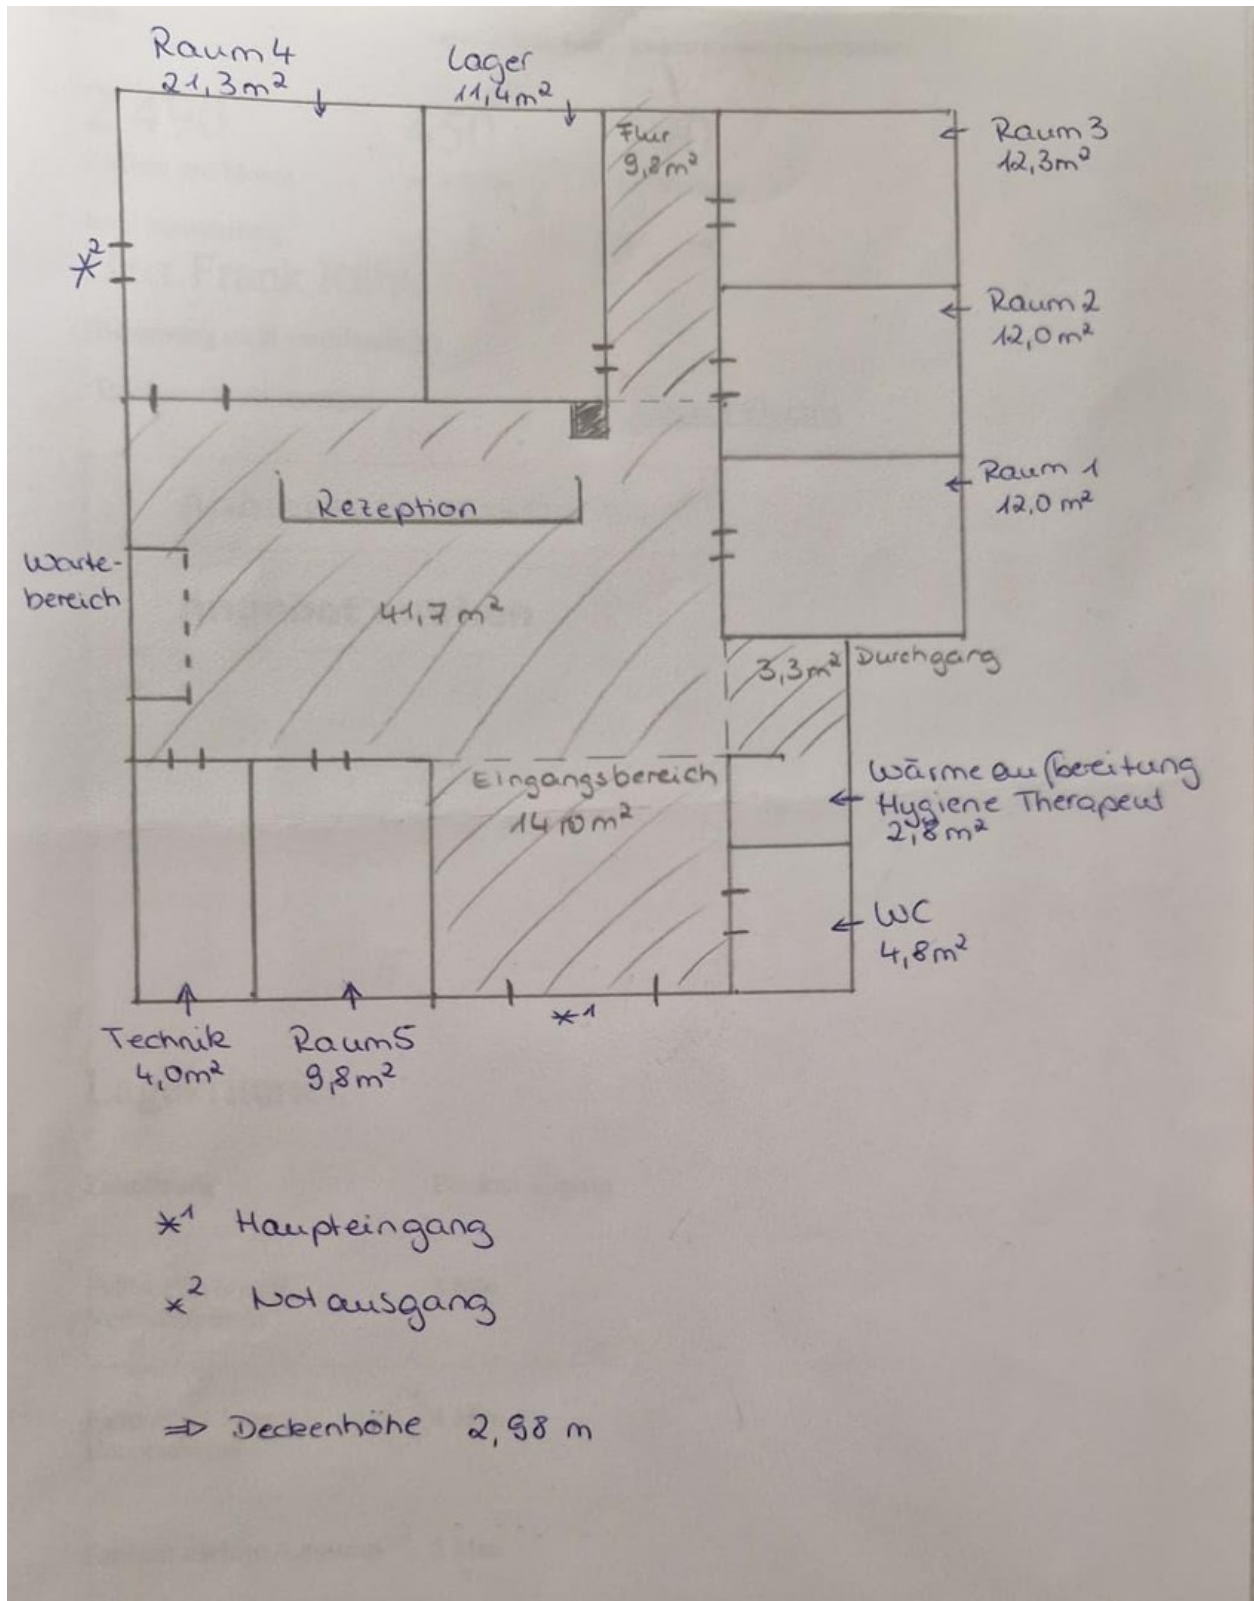 Raum 4
21,3m²
Lager
11,4m²
Flur
9,8m²
Raum 3
12,3m²
*2
Raum 2
12,0m²
Raum 1
12,0m²
Rezeption
Warte-
bereich
41,7m²
3,3m² Durchgang
Eingangsbereich
14,0m²
Wärmeaufbereitung
Hygiene Therapeut
2,8m²
WC
4,8m²
*1
Technik
4,0m²
Raum 5
9,8m²
*1 Haupteingang
*2 Notausgang
⇒ Deckenhöhe 2,98 m